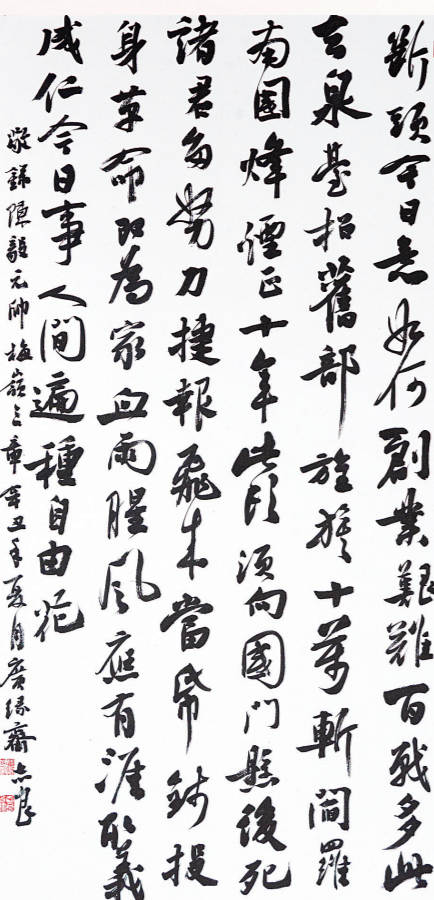 斷頭今日意如何創業艱難百戰多此
去泉臺招舊部旌旗十萬斬閻羅
南國烽煙正十年此頭須向國門懸後死
諸君多努力捷報飛來當紙錢投
身革命即為家血雨腥風應有涯取義
成仁今日事人間遍種自由花
敬錄陳毅元帥梅嶺三章辛丑年夏月廣緣齋志良